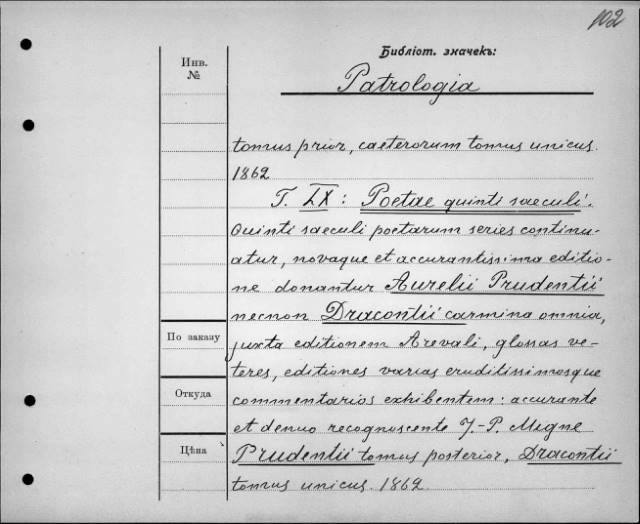 102
Библіот. значекъ:
Инв.
№
Patrologia
tomus prior, caeterorum tomus unicus.
1862
T. LX: Poetae quinti saeculi.
Quinti saeculi poetarum series continu-
atur, novaque et accurantissima editio-
ne donantur Aurelii Prudentii
necnon Dracontii carmina omnia,
По заказу
juxta editionem Arevali, glossas ve-
teres, editiones varias eruditissimosque
Откуда
commentarios exhibentem: accurante
et denuo recognoscente J.-P. Migne
Цѣна
Prudentii tomus posterior, Dracontii
tomus unicus. 1862